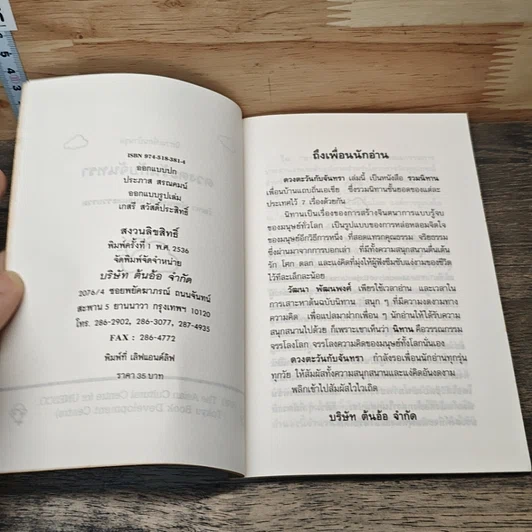 ISBN 974-518-381-4
ออกแบบปก
ประภาส สรณคมน์
ออกแบบรูปเล่ม
เกสรี สวัสดิ์ประสิทธิ์
สงวนลิขสิทธิ์
พิมพ์ครั้งที่ 1 พ.ศ. 2536
จัดพิมพ์จัดจำหน่าย
บริษัท ต้นอ้อ จำกัด
2076/4 ซอยพยัคฆาภรณ์ ถนนจันทน์
สะพาน 5 ยานนาวา กรุงเทพฯ 10120
โทร. 286-2902, 286-3077, 287-4935
FAX : 286-4772
พิมพ์ที่ เลิฟแอนด์ลิฟ
ราคา 35 บาท
ถึงเพื่อนนักอ่าน
ดวงตะวันกับจันทรา เล่มนี้ เป็นหนังสือ รวมนิทาน
เพื่อนบ้านแถบถิ่นเอเชีย ซึ่งรวมนิทานชั้นยอดของแต่ละ
ประเทศไว้ 7 เรื่องด้วยกัน
นิทานเป็นเรื่องของการสร้างจินตนาการแบบรู้จบ
ของมนุษย์ทั่วโลก เป็นรูปแบบของการหล่อหลอมจิตใจ
ของมนุษย์อีกวิธีการหนึ่ง ที่สอดแทรกคุณธรรม จริยธรรม
ซึ่งผ่านมาจากการบอกเล่า ที่มีทั้งความสนุกสนานตื่นเต้น
รัก โศก ตลก และแง่คิดที่มุ่งให้ผู้ฟังซึมซับแง่งามของชีวิต
ไว้ทีละเล็กละน้อย
วัฒนา พัฒนพงศ์ เพียรใช้เวลาอ่าน และเวลาใน
การเสาะหาต้นฉบับนิทาน สนุก ๆ ที่มีความงดงามทาง
ความคิด เพื่อแปลมาฝากเพื่อน ๆ นักอ่านให้ได้รับความ
สนุกสนานไปด้วย ก็เพราะเขาเห็นว่า นิทาน คือวรรณกรรม
จรรโลงโลก จรรโลงความคิดของมนุษย์ทั้งโลกนั่นเอง
ดวงตะวันกับจันทรา กำลังรอเพื่อนนักอ่านทุกรุ่น
ทุกวัย ให้สัมผัสทั้งความสนุกสนานและแง่คิดอันงดงาม
พลิกเข้าไปสัมผัสไวไวเถิด
บริษัท ต้นอ้อ จำกัด